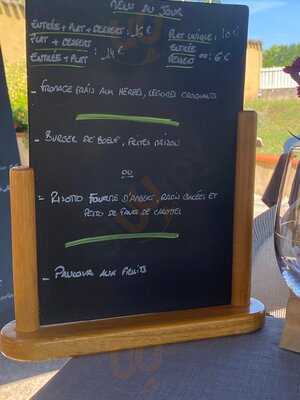 MENU DU JOUR
ENTRÉE + PLAT + DESSERT : 16 €
PLAT + DESSERT
ENTRÉE + PLAT : 14 €
PLAT UNIQUE : 10
ENTRÉE
DESSERT ou : 6 €
- FROMAGE FRAIS AUX HERBES, LÉGUMES CROQUANTS
- BURGER DE BOEUF, FRITES MAISON
OU
- RISOTTO FOURME D'AMBERT, RADIS GLACÉES ET
PESTO DE FANES DE CAROTTES
- AUX FRUITS